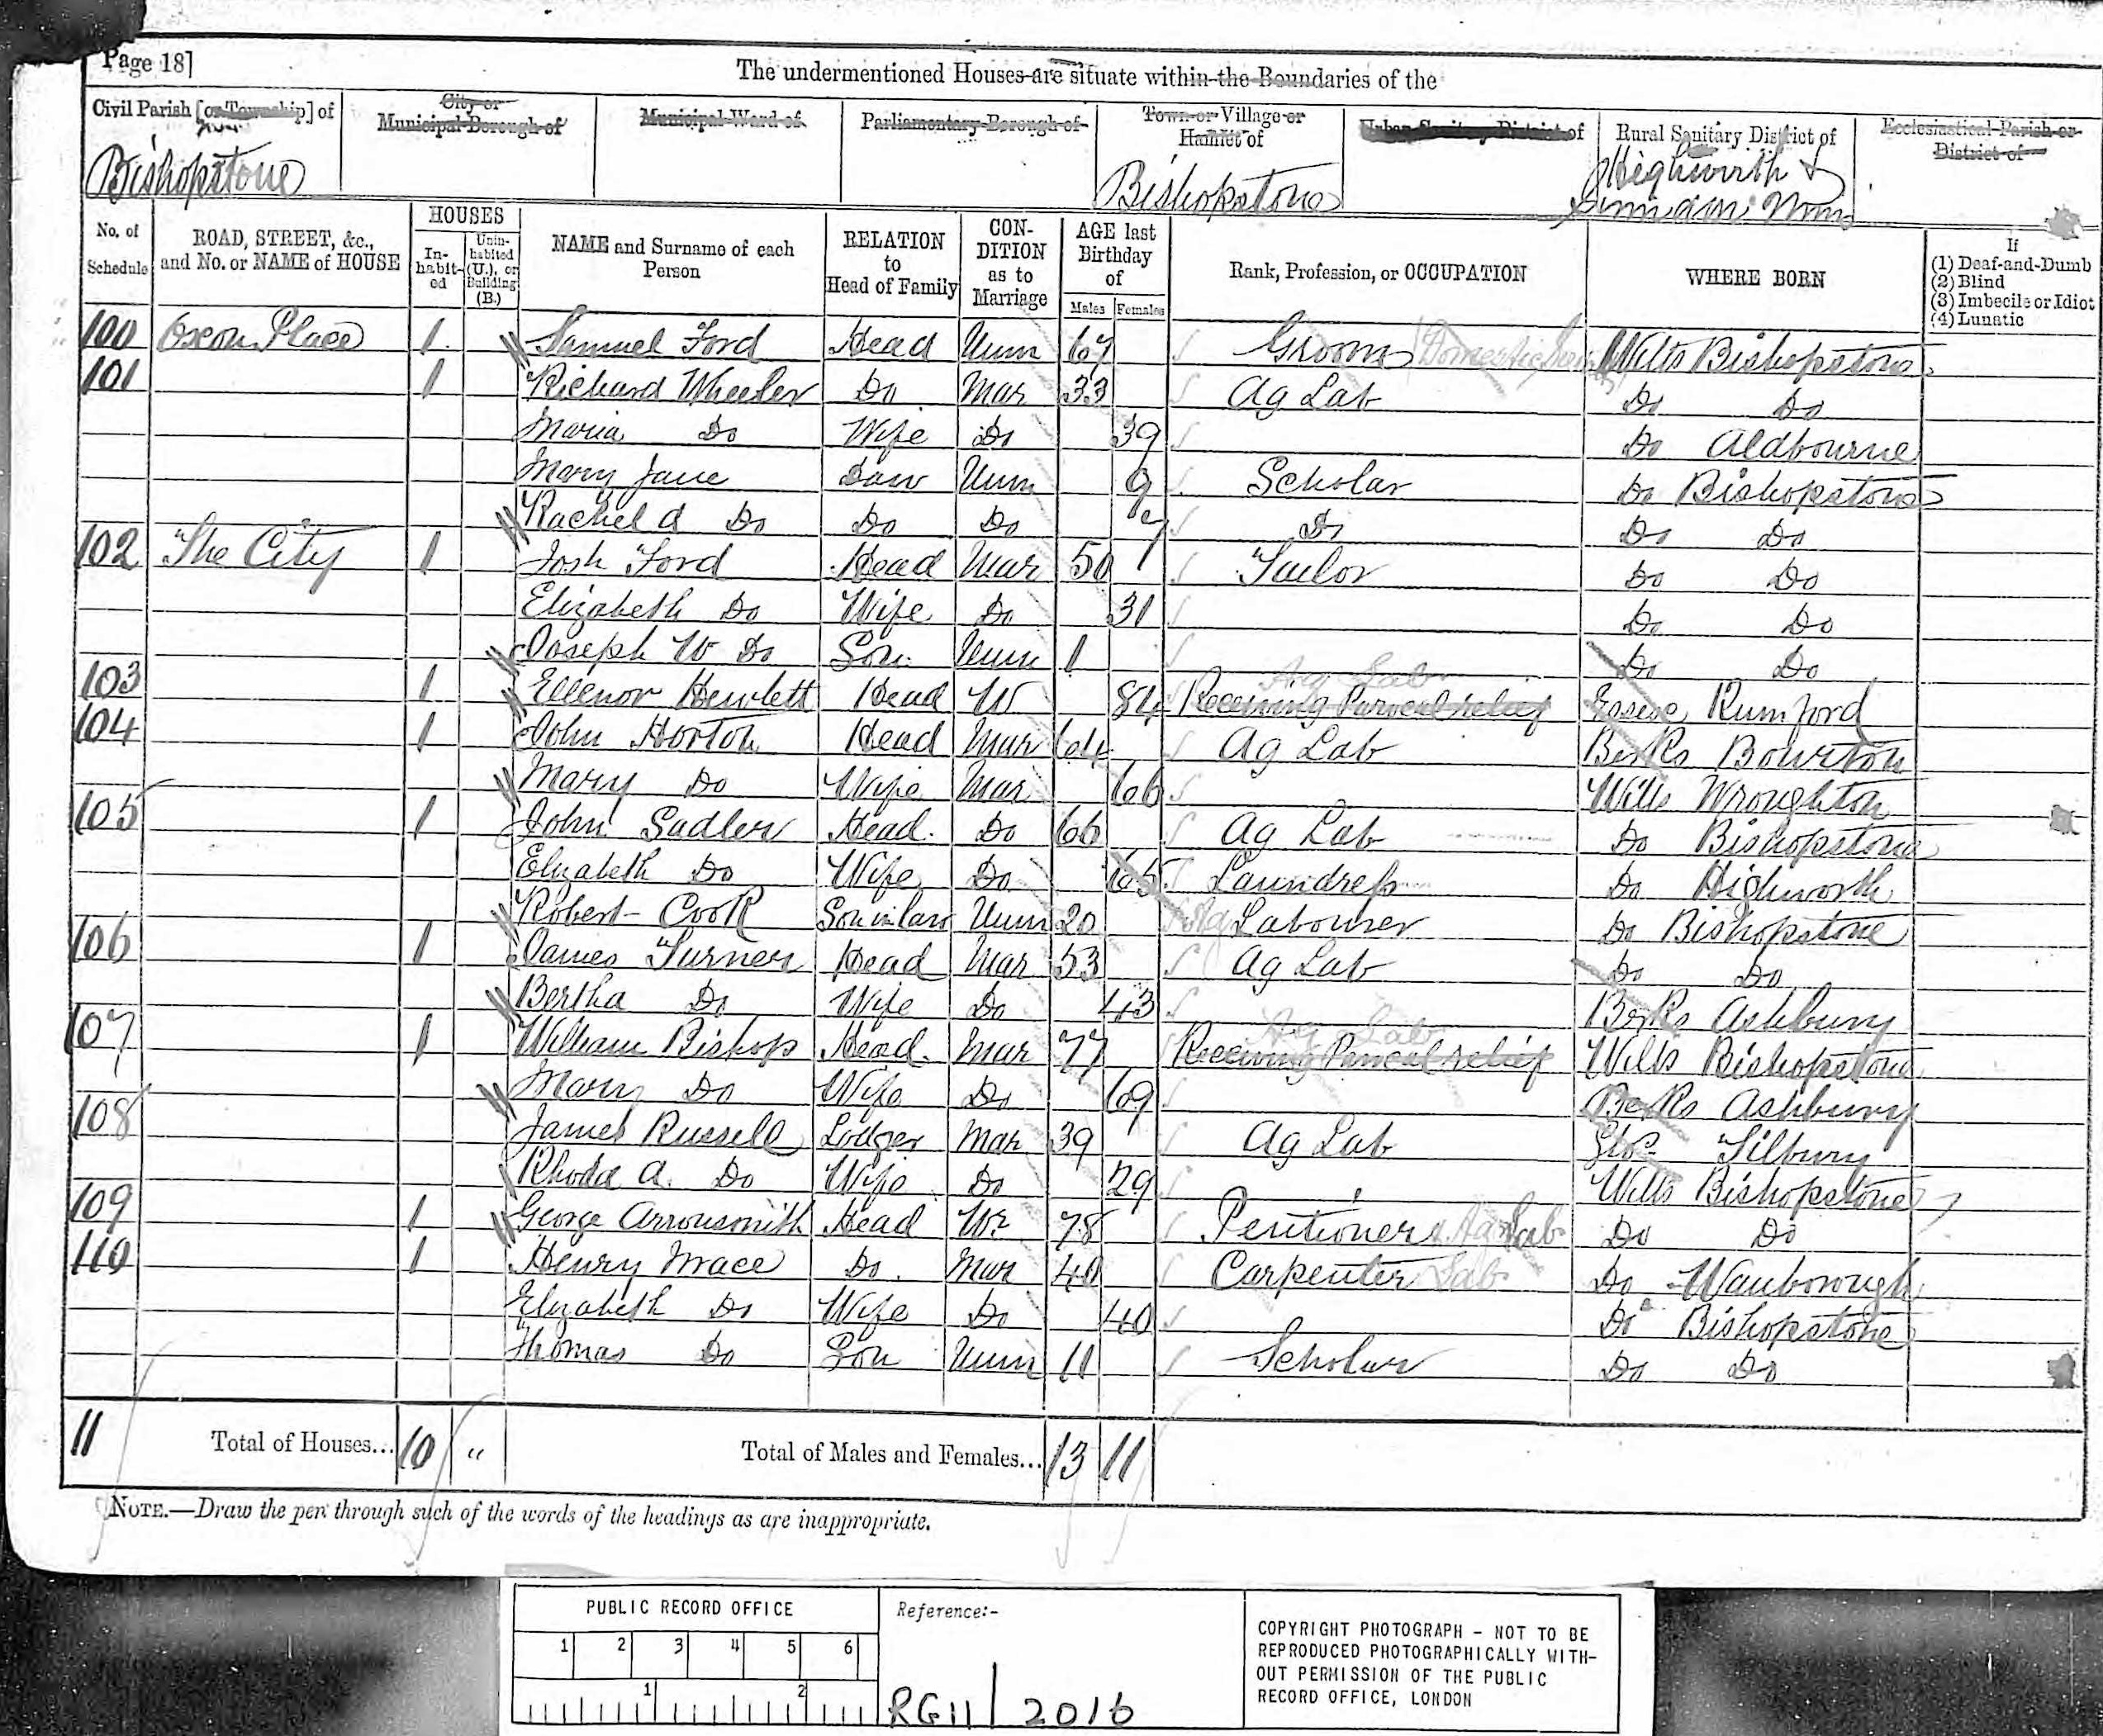 Page 18]
The undermentioned Houses are situate within the Boundaries of the
Civil Parish [or Township] of
City or Municipal Borough of
Municipal Ward of
Parliamentary Borough of
Town or Village or Hamlet of
Urban Sanitary District of
Rural Sanitary District of
Ecclesiastical Parish or District of
Bishopstone
Bishopstone
Highworth &
No. of Schedule
ROAD, STREET, &c., and No. or NAME of HOUSE
HOUSES
In-habit-ed
Unin-habited (U.), or Building (B.)
NAME and Surname of each Person
RELATION to Head of Family
CON-DITION as to Marriage
AGE last Birthday of
Males Females
Rank, Profession, or OCCUPATION
WHERE BORN
If
(1) Deaf-and-Dumb
(2) Blind
(3) Imbecile or Idiot
(4) Lunatic
100 Oxon Place 1 Samuel Ford Head Unm 67 Groom Wilts Bishopstone
101 1 Richard Wheeler Do Mar 33 Ag Lab Do Do
Maria Do Wife Do 39 Do Aldbourne
Mary Jane Daur Unm 9 Scholar Do Bishopstone
Rachel A Do Do Do 7 Do Do Do
102 The City 1 Josh Ford Head Mar 50 Tailor Do Do
Elizabeth Do Wife Do 31 Do Do
Joseph W Do Son Unm 1 Do Do
Ag Lab
103 1 Ellenor Hewlett Head W 84 Receiving Parocal relief Essex Rumford
104 1 John Horton Head Mar 64 Ag Lab Berks Bourton
Mary Do Wife Mar 66 Wilts Wroughton
105 1 John Sadler Head Do 66 Ag Lab Do Bishopstone
Elizabeth Do Wife Do 65 Laundress Do Highworth
Robert Cook Son in law Unm 20 Ag Labourer Do Bishopstone
106 1 James Turner Head Mar 53 Ag Lab Do Do
Bertha Do Wife Do 43 Berks Ashbury
Ag Lab
107 1 William Bishop Head Mar 77 Receiving Parocal relief Wilts Bishopstone
Mary Do Wife Do 69 Berks Ashbury
108 James Russell Lodger Mar 39 Ag Lab Glos Tilbury
Rhoda A. Do Wife Do 29 Wilts Bishopstone
109 1 George Arrowsmith Head Wr 78 Pentioner Ag Lab Do Do
110 1 Henry Mace Do Mar 40 Carpenter Lab Do Wanborough
Elizabeth Do Wife Do 40 Do Bishopstone
Thomas Do Son Unm 11 Scholar Do Do
11 Total of Houses... 10 " Total of Males and Females... 13 11
NOTE.—Draw the pen through such of the words of the headings as are inappropriate.
PUBLIC RECORD OFFICE
1 2 3 4 5 6
1 2
Reference:-
RG11/2016
COPYRIGHT PHOTOGRAPH - NOT TO BE
REPRODUCED PHOTOGRAPHICALLY WITH-
OUT PERMISSION OF THE PUBLIC
RECORD OFFICE, LONDON